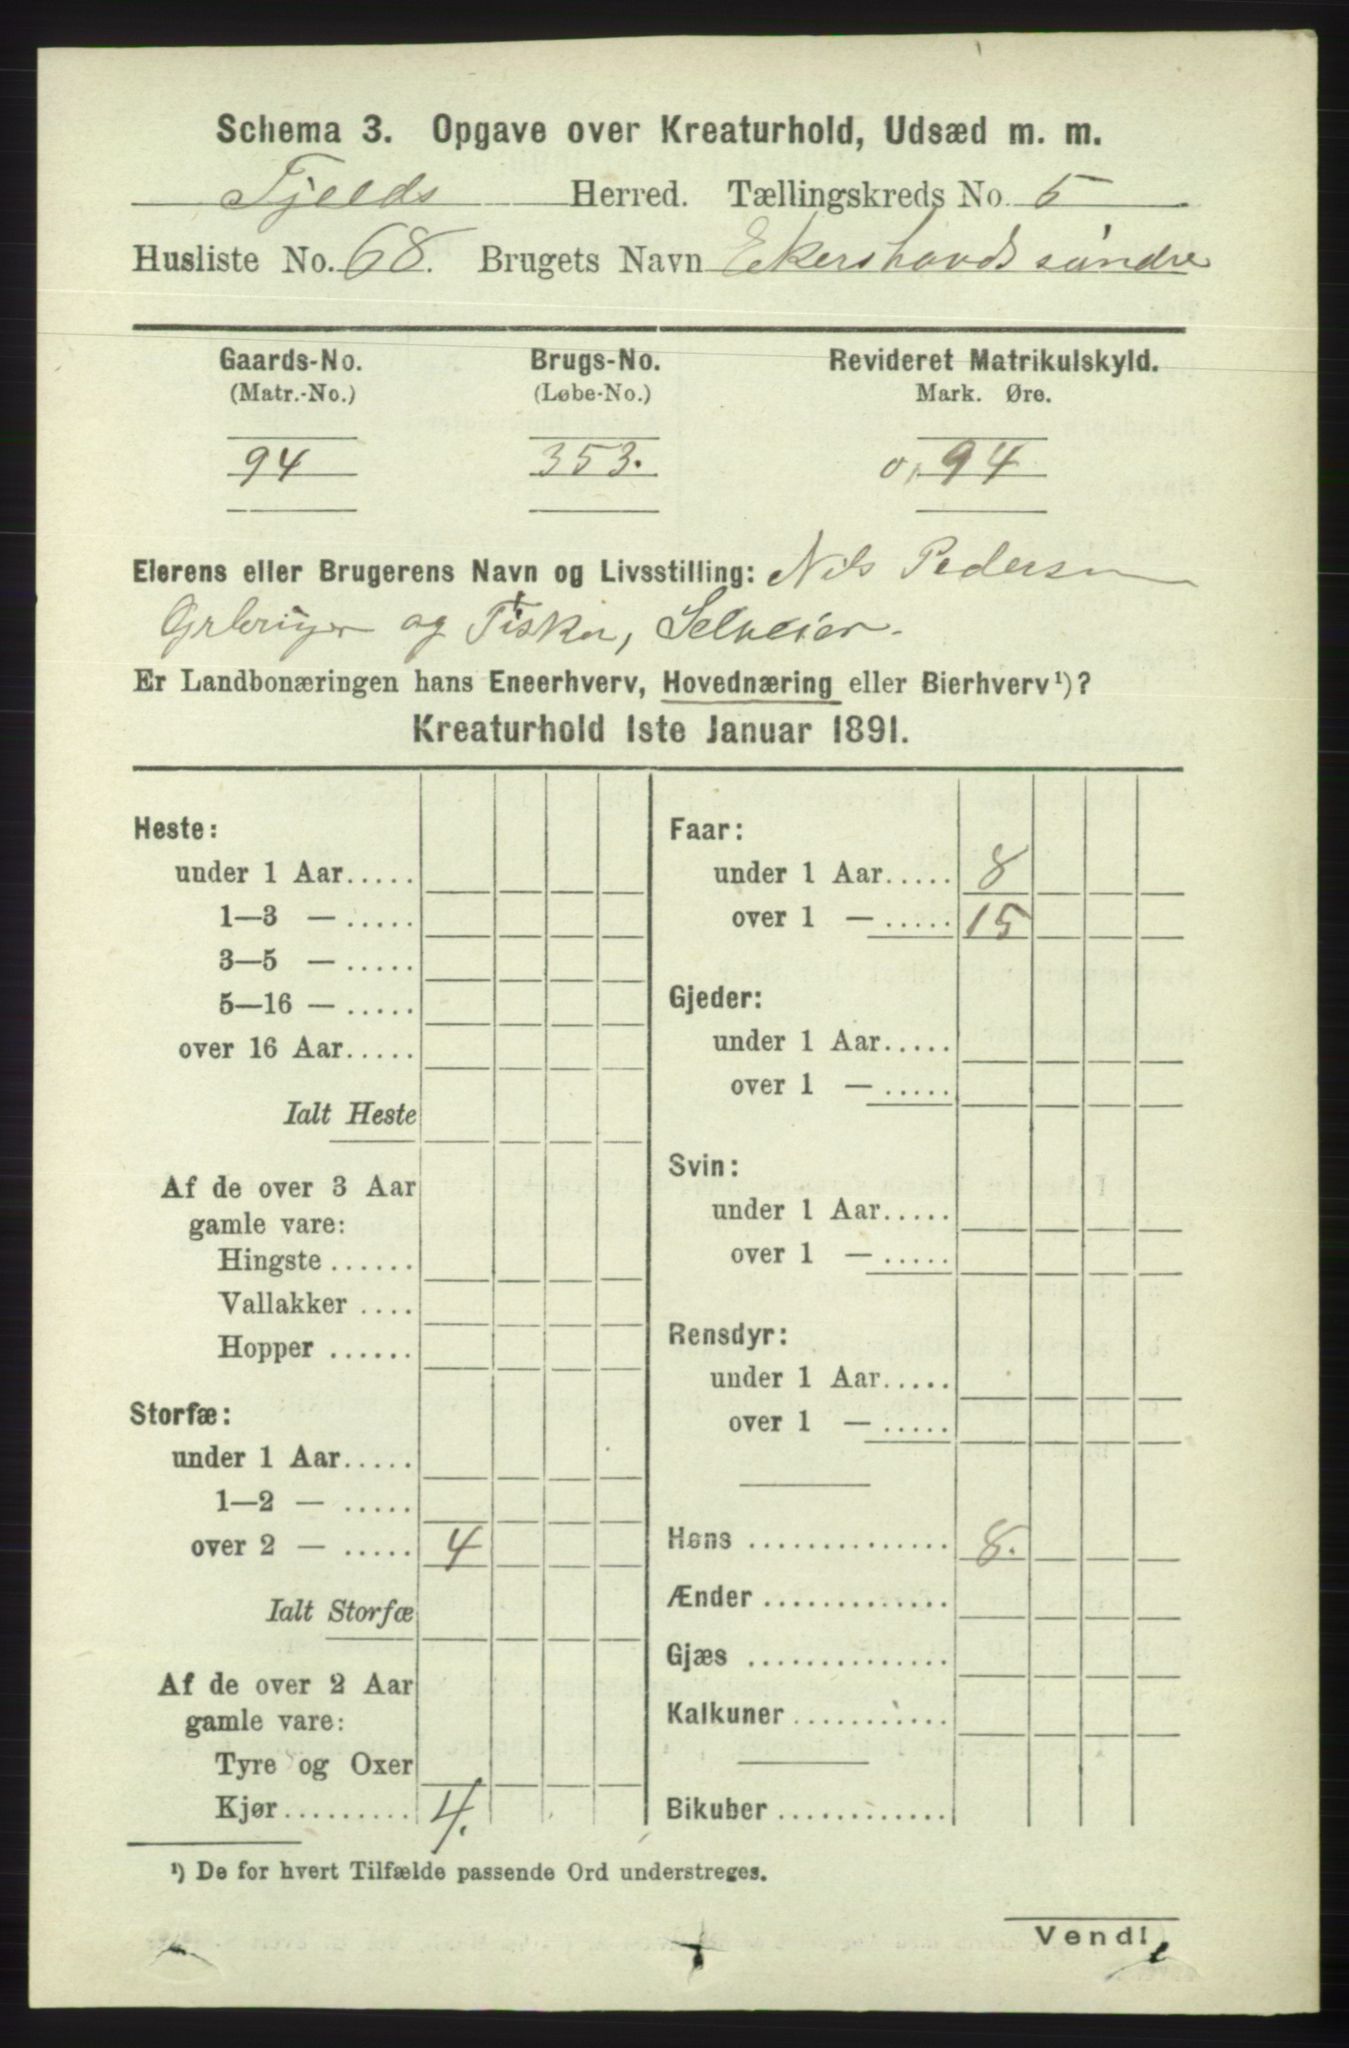 Schema 3. Opgave over Kreaturhold, Udsæd m. m.
Fjelds Herred. Tællingskreds No. 5
Husliste No. 68. Brugets Navn Ekershovds søndre
Gaards-No. Brugs-No. Revideret Matrikulskyld.
(Matr.-No.) (Løbe-No.) Mark. Øre.
94 353. 0,94
Eierens eller Brugerens Navn og Livsstilling: Nils Pedersen
og Fisker, Selveier.
Er Landbonæringen hans Eneerhverv, Hovednæring eller Bierhverv¹)?
Kreaturhold 1ste Januar 1891.
Heste:
under 1 Aar.....
1—3 — .....
3—5 — .....
5—16 — .....
over 16 Aar.....
Ialt Heste
Af de over 3 Aar
gamle vare:
Hingste ......
Vallakker ....
Hopper ......
Storfæ:
under 1 Aar.....
1—2 — .....
over 2 — ..... 4
Ialt Storfæ
Af de over 2 Aar
gamle vare:
Tyre og Oxer
Kjør......... 4.
Faar:
under 1 Aar..... 8
over 1 — ..... 15
Gjeder:
under 1 Aar.....
over 1 — .....
Svin:
under 1 Aar.....
over 1 — .....
Rensdyr:
under 1 Aar.....
over 1 — .....
Høns .............. 8.
Ænder .............
Gjæs ..............
Kalkuner ...........
Bikuber .............
¹) De for hvert Tilfælde passende Ord understreges.
Vend!